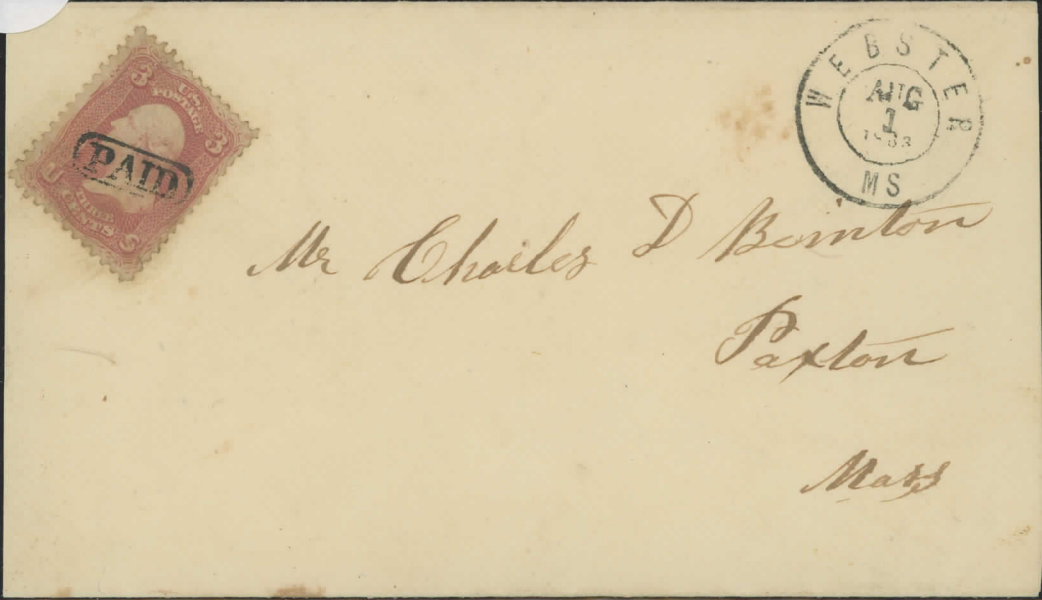 3
U.S.
POSTAGE
3
PAID
U
THREE
CENTS
S
WEBSTER
AUG
1
1863
MS
Mr Charles D Bointon
Paxton
Mass